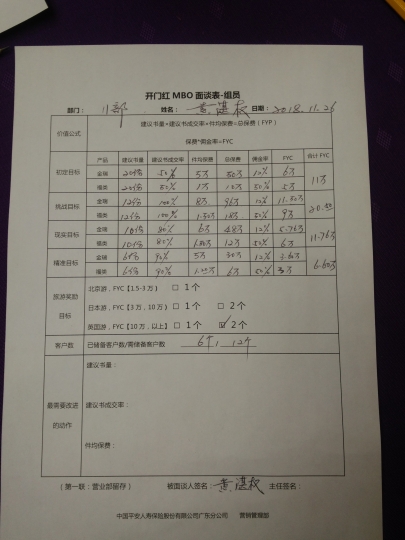 开门红 MBO 面谈表-组员
部门： 11部 姓名： 黄湛权 日期： 2018.11.26
价值公式 建议书量*建议书成交率*件均保费=总保费（FYP）
保费*佣金率=FYC
产品 建议书量 建议书成交率 件均保费 总保费 佣金率 FYC 合计 FYC
初定目标 金瑞 20份 50% 5万 50万 12% 6万 11万
福类 20份 50% 1万 10万 50% 5万
挑战目标 金瑞 12份 100% 8万 96万 12% 11.50万 20.50
福类 12份 100% 1.50万 18万 50% 9万
现实目标 金瑞 10份 80% 6万 48万 12% 5.76万 11.76万
福类 10份 80% 1.50万 12万 50% 6万
精准目标 金瑞 6份 90% 5万 30万 12% 3.60万 6.60万
福类 6份 90% 6万 50% 3万
旅游奖励目标 北京游，FYC【1.5-3 万】 □ 1个
日本游，FYC【3 万，10 万】 □ 1个 □ 2个
英国游，FYC【10 万，以上】 □ 1个 ☑ 2个
客户数 已储备客户数/需储备客户数 6个, 12个
最需要改进的动作 建议书量：
建议书成交率：
件均保费：
（第一联：营业部留存） 被面谈人签名： 黄湛权 主任签名：
中国平安人寿保险股份有限公司广东分公司 营销管理部